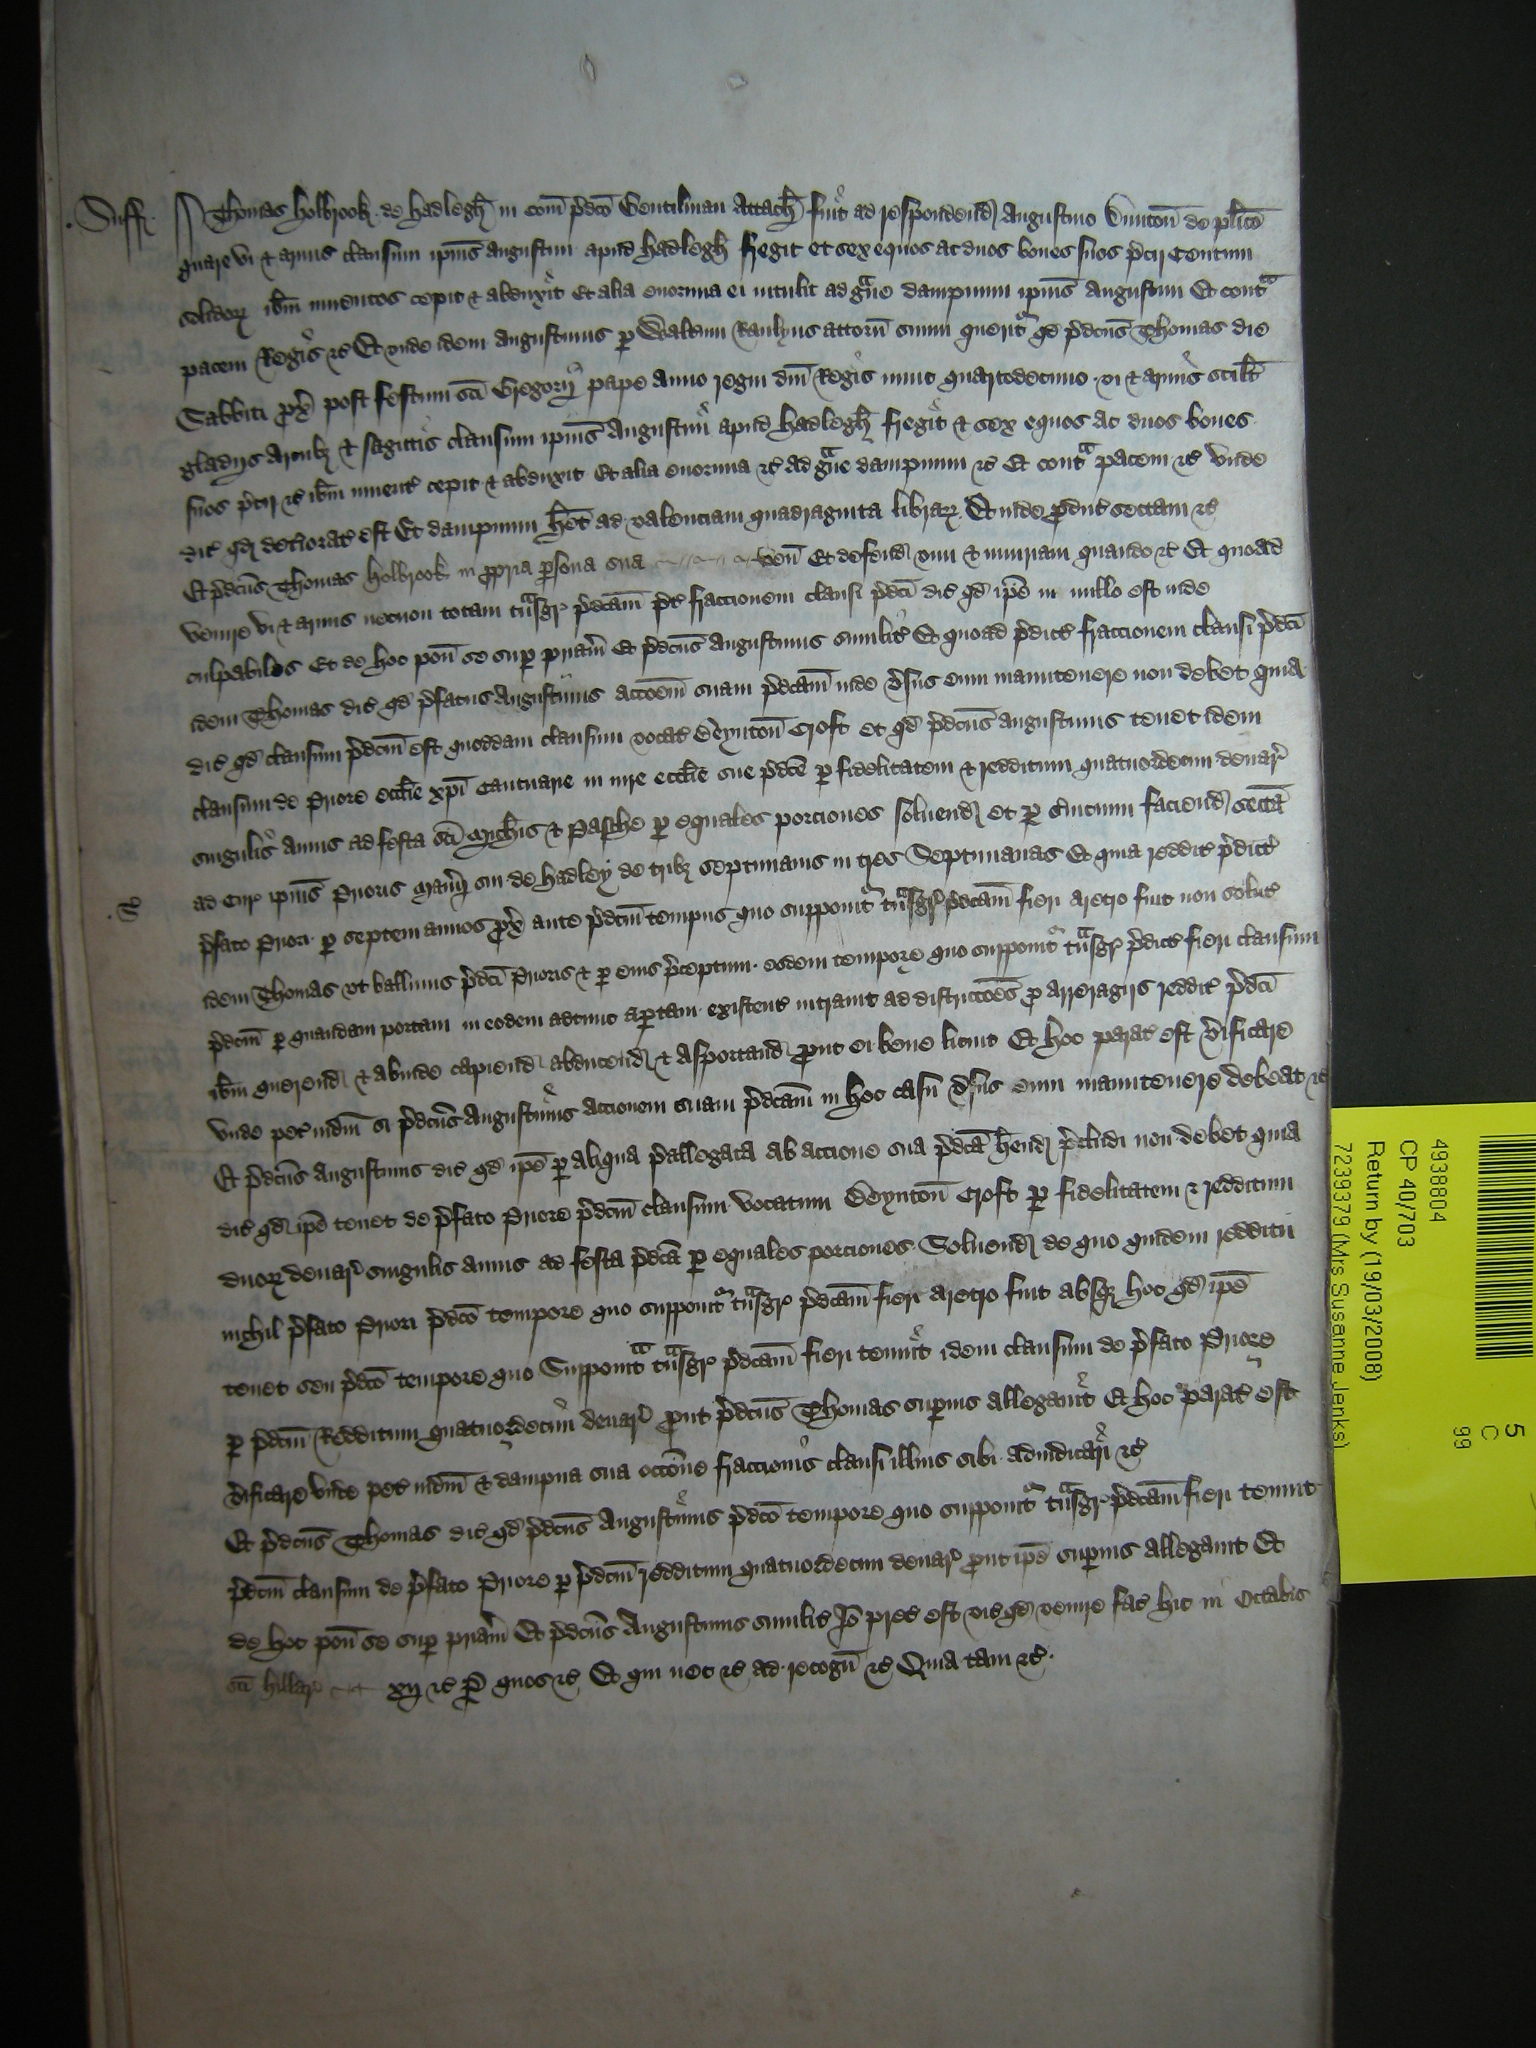 Suff
Thomas Holbrook de Hadlegh in com pdco Gentilman attach fuit ad respondend Augustino Duntou de plito
quare vi & armis clausum ipius Augustini apud Hadlegh fregit et sex equos ac duos boves suos pcij Centum
solidor ibm inventos cepit & abduxit Et alia enormia ei intulit ad gave dampnum ipius Augustini Et contra
pacem Regis &c Et unde idem Augustinus p Waltum Raulyns attorn suum querit qd pdcus Thomas die
Sabbti px post festum sci Gregorij pape anno regni dni Regis nunc quartodecimo vi & armis scilt
gladijs arcubz & sagittis clausum ipius Augustini apud Hadlegh fregit & sex equos ac duos boves
suos pcij &c ibm invent cepit & abduxit Et alia enormia &c ad gave dampnum &c Et contra pacem &c Unde
dic qd deteriorat est Et dampnum het ad valenciam quadraginta librar Et inde producit sectam &c
Et pdcus Thomas Holbrook in ppria psona sua ven Et defend vim & iniuriam quando &c Et quoad
venire vi & armis necnon totam tnsgr pdcam pt fraccionem clausi pdci dic qd ipe in nullo est inde
culpabilis Et de hoc pon se sup priam Et pdcus Augustinus similit Et quoad pdict fraccionem clausi pdci
idem Thomas dic qd pfatus Augustinus accoem suam pdcam inde vsus eum manutenere non debet quia
dic qd clausum pdcm est quoddam clausum vocat Deyntou Croft et qd pdcus Augustinus tenet idem
clausum de Priore ecclie xpi Cantuarie in iure ecclie sue pdce p fidelitatem & redditum quatuordecim denar
singulis annis ad festa sci Michis & Pasche p equales porciones soluend et p svicium faciend secta
ad Cur ipius Prioris Manij sui de Hadley de tribz septimanis in tres septimanas Et quia reddit pdict
S
pfato Priori p septem annos px ante pdcm tempus quo supponit tnsgr pdcam fieri aretro fuit non solut
idem Thomas ut ballivus pdci Prioris & p eius pceptum eodem tempore quo supponit tnsgr pdict fieri clausum
pdcm p quandam portam in eodem adtunc aptam existent intravit ad districcoes p arreragijs reddit pdci
ibm querend & abinde capiend abducend & asportand put ei bene licuit Et hoc parat est vificare
unde pet iudm si pdcus Augustinus accionem suam pdcam in hoc casu vsus eum manutenere debeat &c
Et pdcus Augustinus dic qd ipe p aliqua pallegata ab accione sua pdca hend pcludi non debet quia
dic qd ipe tenet de pfato Priore pdcm clausum vocatum Deyntou Croft p fidelitatem & redditum
duor denar singulis annis ad festa pdca p equales porciones Soluend de quo quidem redditu
nichil pfato Priori pdco tempore quo supponit tnsgr pdcam fieri aretro fuit absqz hoc qd ipe
tenet seu pdco tempore quo Supponit tnsgr pdcam fieri tenuit idem clausum de pfato Priore
p pdcm Redditum quatuordecim denar put pdcus Thomas supius allegavit Et hoc parat est
vificare Unde pet iudm & dampna sua occone fraccionis clausi illius sibi adiudicari &c
Et pdcus Thomas dic qd pdcus Augustinus pdco tempore quo supponit tnsgr pdcam fieri tenuit
pdcm clausum de pfato Priore p pdcm redditum quatuordecim denar put ipe supius allegavit Et
de hoc pon se sup priam Et pdcus Augustinus similit Io prec est vic qd venire fac hic in Octabis
sci Hillar xij &c P quos &c Et qui nec &c ad recogn &c Quia tam &c
4938804
CP 40/703
Return by (19/03/2008)
7239379 (Mrs Susanne Jenks)
5
C
99